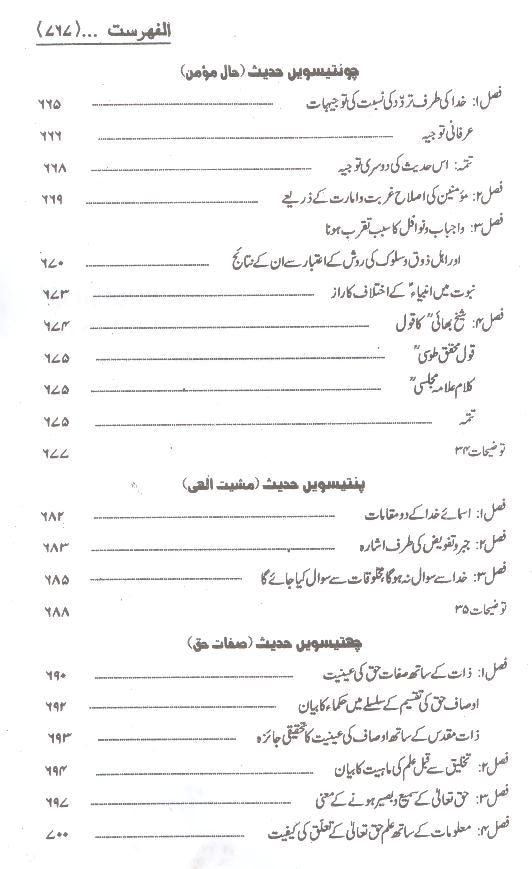 الفہرست ...(۷۶۷)
چونتیسویں حدیث (حال مؤمن)
فصل ۱: خدا کی طرف تردّد کی نسبت کی توجیہات ۶۶۵
عرفانی توجیہ ۶۶۶
تتمہ: اس حدیث کی دوسری توجیہ ۶۶۸
فصل ۲: مؤمنین کی اصلاح غربت و امارت کے ذریعے ۶۶۹
فصل ۳: واجبات و نوافل کا سبب تقرب ہونا
اور اہل ذوق و سلوک کی روش کے اعتبار سے ان کے نتائج ۶۷۰
نبوت میں انبیاءؑ کے اختلاف کا راز ۶۷۳
فصل ۴: شیخ بھائیؒ کا قول ۶۷۴
قول محقق طوسیؒ ۶۷۵
کلام علامہ مجلسیؒ ۶۷۵
تتمّہ ۶۷۵
توضیحات ۳۴ ۶۷۷
پنتیسویں حدیث (مشیت الٰھی)
فصل ۱: اسمائے خدا کے دو مقامات ۶۸۲
فصل ۲: جبر و تفویض کی طرف اشارہ ۶۸۳
فصل ۳: خدا سے سوال نہ ہوگا، مخلوقات سے سوال کیا جائے گا ۶۸۵
توضیحات ۳۵ ۶۸۸
چھتیسویں حدیث (صفات حق)
فصل ۱: ذات کے ساتھ صفات حق کی عینیت ۶۹۰
اوصاف حق کی تقسیم کے سلسلے میں حکماء کا بیان ۶۹۲
ذات مقدس کے ساتھ اوصاف کی عینیت کا تحقیقی جائزہ ۶۹۳
فصل ۲: تخلیق سے قبل علم کی ماہیت کا بیان ۶۹۴
فصل ۳: حق تعالیٰ کے سمیع و بصیر ہونے کے معنی ۶۹۷
فصل ۴: معلومات کے ساتھ علم حق تعالیٰ کے تعلّق کی کیفیت ۷۰۰